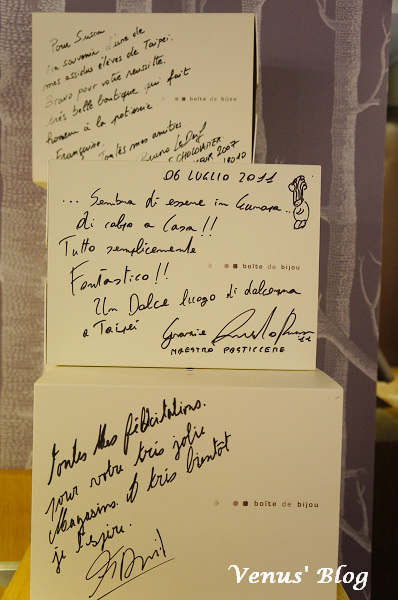 Pour Susan
un souvenir d'une de
mes assidus élèves de Taipei.
Bravo pour votre réussite,
très belle boutique qui fait
honneur à la patisserie
Française.
Toutes mes amitiés
Bruno Le
CHOCOLATIER
2007
boîte de bijou
06 LUGLIO 2011
... Sembra di essere in
di colpo a Casa!!
Tutto semplicemente
Fantastico!!
Un Dolce luogo di dolcezza
a Taipei
Grazie
11
MAESTRO PASTICCERE
boîte de bijou
toutes Mes félicitations.
pour votre très jolie
Magasins. A très bientôt
je l'espère.
boîte de bijou
Venus' Blog